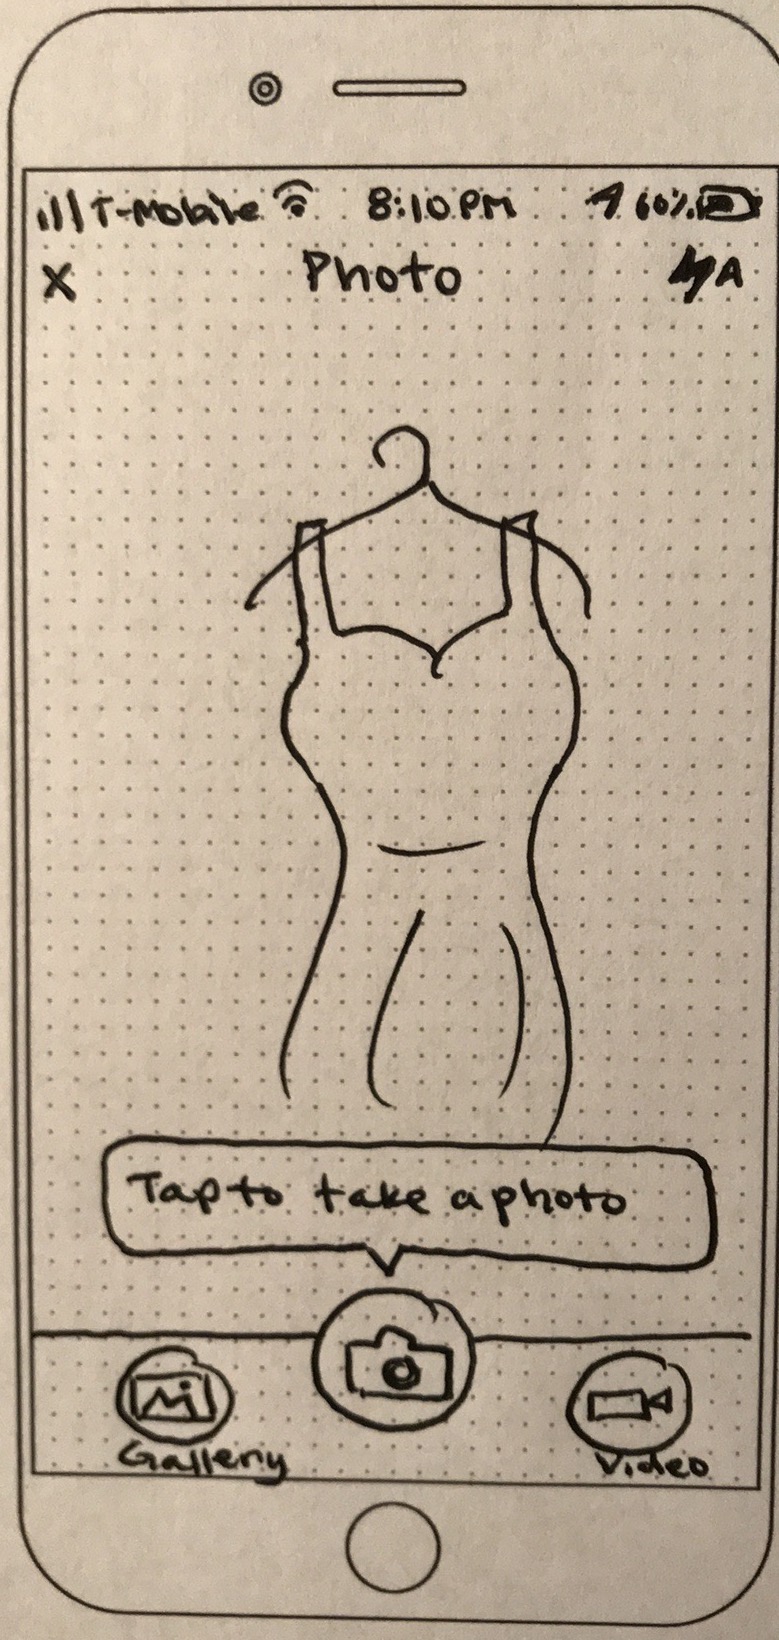 T-Mobile 8:10 PM 60%
X Photo A
Tap to take a photo
Gallery Video